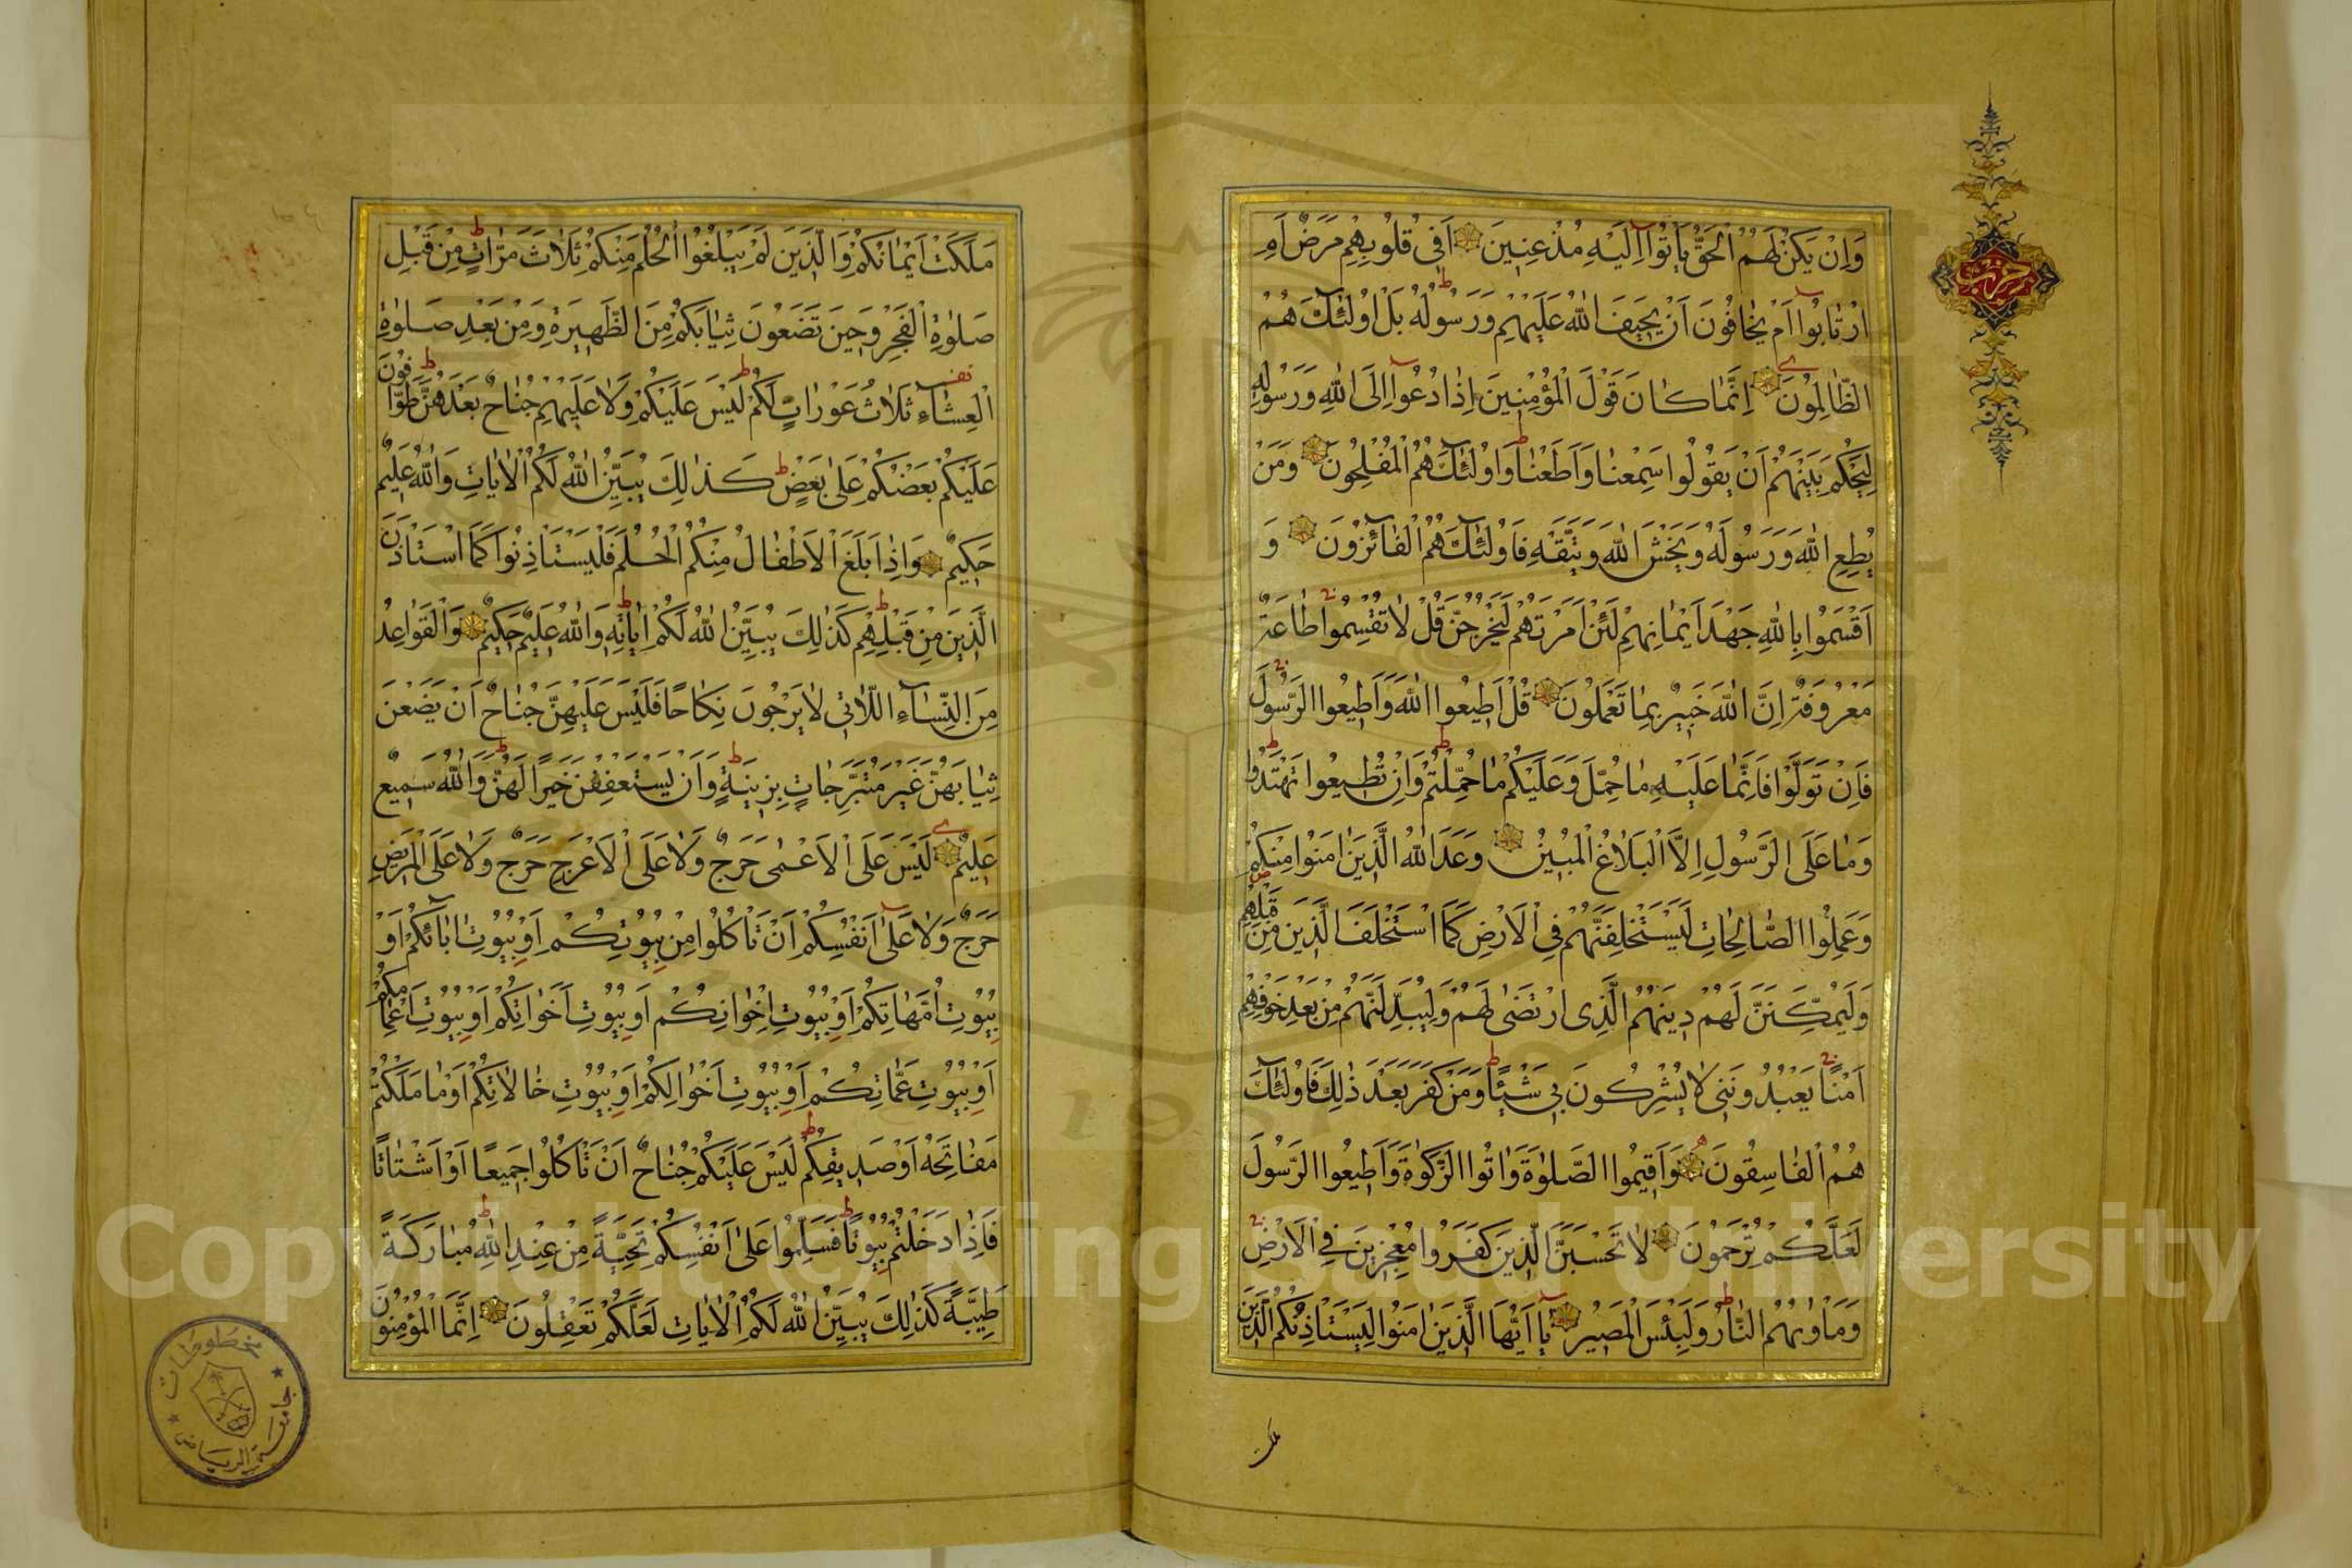 وَاِنْ يَكُنْ لَهُمُ الْحَقُّ يَاْتُوا اِلَيْهِ مُذْعِنِينَ اَفِى قُلُوبِهِمْ مَرَضٌ اَمِ
ارْتَابُوا اَمْ يَخَافُونَ اَنْ يَحِيفَ اللّٰهُ عَلَيْهِمْ وَرَسُولُهُ بَلْ اُولٰئِكَ هُمُ
الظَّالِمُونَ اِنَّمَا كَانَ قَوْلَ الْمُؤْمِنِينَ اِذَا دُعُوا اِلَى اللّٰهِ وَرَسُولِهِ
لِيَحْكُمَ بَيْنَهُمْ اَنْ يَقُولُوا سَمِعْنَا وَاَطَعْنَا وَاُولٰئِكَ هُمُ الْمُفْلِحُونَ وَمَنْ
يُطِعِ اللّٰهَ وَرَسُولَهُ وَيَخْشَ اللّٰهَ وَيَتَّقْهِ فَاُولٰئِكَ هُمُ الْفَائِزُونَ وَ
اَقْسَمُوا بِاللّٰهِ جَهْدَ اَيْمَانِهِمْ لَئِنْ اَمَرْتَهُمْ لَيَخْرُجُنَّ قُلْ لَا تُقْسِمُوا طَاعَةٌ
مَعْرُوفَةٌ اِنَّ اللّٰهَ خَبِيرٌ بِمَا تَعْمَلُونَ قُلْ اَطِيعُوا اللّٰهَ وَاَطِيعُوا الرَّسُولَ
فَاِنْ تَوَلَّوْا فَاِنَّمَا عَلَيْهِ مَا حُمِّلَ وَعَلَيْكُمْ مَا حُمِّلْتُمْ وَاِنْ تُطِيعُوا تَهْتَدُوا
وَمَا عَلَى الرَّسُولِ اِلَّا الْبَلَاغُ الْمُبِينُ وَعَدَ اللّٰهُ الَّذِينَ اٰمَنُوا مِنْكُمْ
وَعَمِلُوا الصَّالِحَاتِ لَيَسْتَخْلِفَنَّهُمْ فِى الْاَرْضِ كَمَا اسْتَخْلَفَ الَّذِينَ مِنْ قَبْلِهِمْ
وَلَيُمَكِّنَنَّ لَهُمْ دِينَهُمُ الَّذِى ارْتَضٰى لَهُمْ وَلَيُبَدِّلَنَّهُمْ مِنْ بَعْدِ خَوْفِهِمْ
اَمْنًا يَعْبُدُونَنِى لَا يُشْرِكُونَ بِى شَيْئًا وَمَنْ كَفَرَ بَعْدَ ذٰلِكَ فَاُولٰئِكَ
هُمُ الْفَاسِقُونَ وَاَقِيمُوا الصَّلٰوةَ وَاٰتُوا الزَّكٰوةَ وَاَطِيعُوا الرَّسُولَ
لَعَلَّكُمْ تُرْحَمُونَ لَا تَحْسَبَنَّ الَّذِينَ كَفَرُوا مُعْجِزِينَ فِى الْاَرْضِ
وَمَاْوٰيهُمُ النَّارُ وَلَبِئْسَ الْمَصِيرُ يَا اَيُّهَا الَّذِينَ اٰمَنُوا لِيَسْتَاْذِنْكُمُ الَّذِينَ
ملكت
حزب
مَلَكَتْ اَيْمَانُكُمْ وَالَّذِينَ لَمْ يَبْلُغُوا الْحُلُمَ مِنْكُمْ ثَلَاثَ مَرَّاتٍ مِنْ قَبْلِ
صَلٰوةِ الْفَجْرِ وَحِينَ تَضَعُونَ ثِيَابَكُمْ مِنَ الظَّهِيرَةِ وَمِنْ بَعْدِ صَلٰوةِ
الْعِشَاءِ ثَلَاثُ عَوْرَاتٍ لَكُمْ لَيْسَ عَلَيْكُمْ وَلَا عَلَيْهِمْ جُنَاحٌ بَعْدَهُنَّ طَوَّافُونَ
عَلَيْكُمْ بَعْضُكُمْ عَلٰى بَعْضٍ كَذٰلِكَ يُبَيِّنُ اللّٰهُ لَكُمُ الْاٰيَاتِ وَاللّٰهُ عَلِيمٌ
حَكِيمٌ وَاِذَا بَلَغَ الْاَطْفَالُ مِنْكُمُ الْحُلُمَ فَلْيَسْتَاْذِنُوا كَمَا اسْتَاْذَنَ
الَّذِينَ مِنْ قَبْلِهِمْ كَذٰلِكَ يُبَيِّنُ اللّٰهُ لَكُمْ اٰيَاتِهِ وَاللّٰهُ عَلِيمٌ حَكِيمٌ وَالْقَوَاعِدُ
مِنَ النِّسَاءِ اللَّاتِى لَا يَرْجُونَ نِكَاحًا فَلَيْسَ عَلَيْهِنَّ جُنَاحٌ اَنْ يَضَعْنَ
ثِيَابَهُنَّ غَيْرَ مُتَبَرِّجَاتٍ بِزِينَةٍ وَاَنْ يَسْتَعْفِفْنَ خَيْرٌ لَهُنَّ وَاللّٰهُ سَمِيعٌ
عَلِيمٌ لَيْسَ عَلَى الْاَعْمٰى حَرَجٌ وَلَا عَلَى الْاَعْرَجِ حَرَجٌ وَلَا عَلَى الْمَرِيضِ
حَرَجٌ وَلَا عَلٰى اَنْفُسِكُمْ اَنْ تَاْكُلُوا مِنْ بُيُوتِكُمْ اَوْ بُيُوتِ اٰبَائِكُمْ اَوْ
بُيُوتِ اُمَّهَاتِكُمْ اَوْ بُيُوتِ اِخْوَانِكُمْ اَوْ بُيُوتِ اَخَوَاتِكُمْ اَوْ بُيُوتِ اَعْمَامِكُمْ
اَوْ بُيُوتِ عَمَّاتِكُمْ اَوْ بُيُوتِ اَخْوَالِكُمْ اَوْ بُيُوتِ خَالَاتِكُمْ اَوْ مَا مَلَكْتُمْ
مَفَاتِحَهُ اَوْ صَدِيقِكُمْ لَيْسَ عَلَيْكُمْ جُنَاحٌ اَنْ تَاْكُلُوا جَمِيعًا اَوْ اَشْتَاتًا
فَاِذَا دَخَلْتُمْ بُيُوتًا فَسَلِّمُوا عَلٰى اَنْفُسِكُمْ تَحِيَّةً مِنْ عِنْدِ اللّٰهِ مُبَارَكَةً
طَيِّبَةً كَذٰلِكَ يُبَيِّنُ اللّٰهُ لَكُمُ الْاٰيَاتِ لَعَلَّكُمْ تَعْقِلُونَ اِنَّمَا الْمُؤْمِنُونَ
مخطوطات
جامعة الرياض
Copyright © King Saud University
195